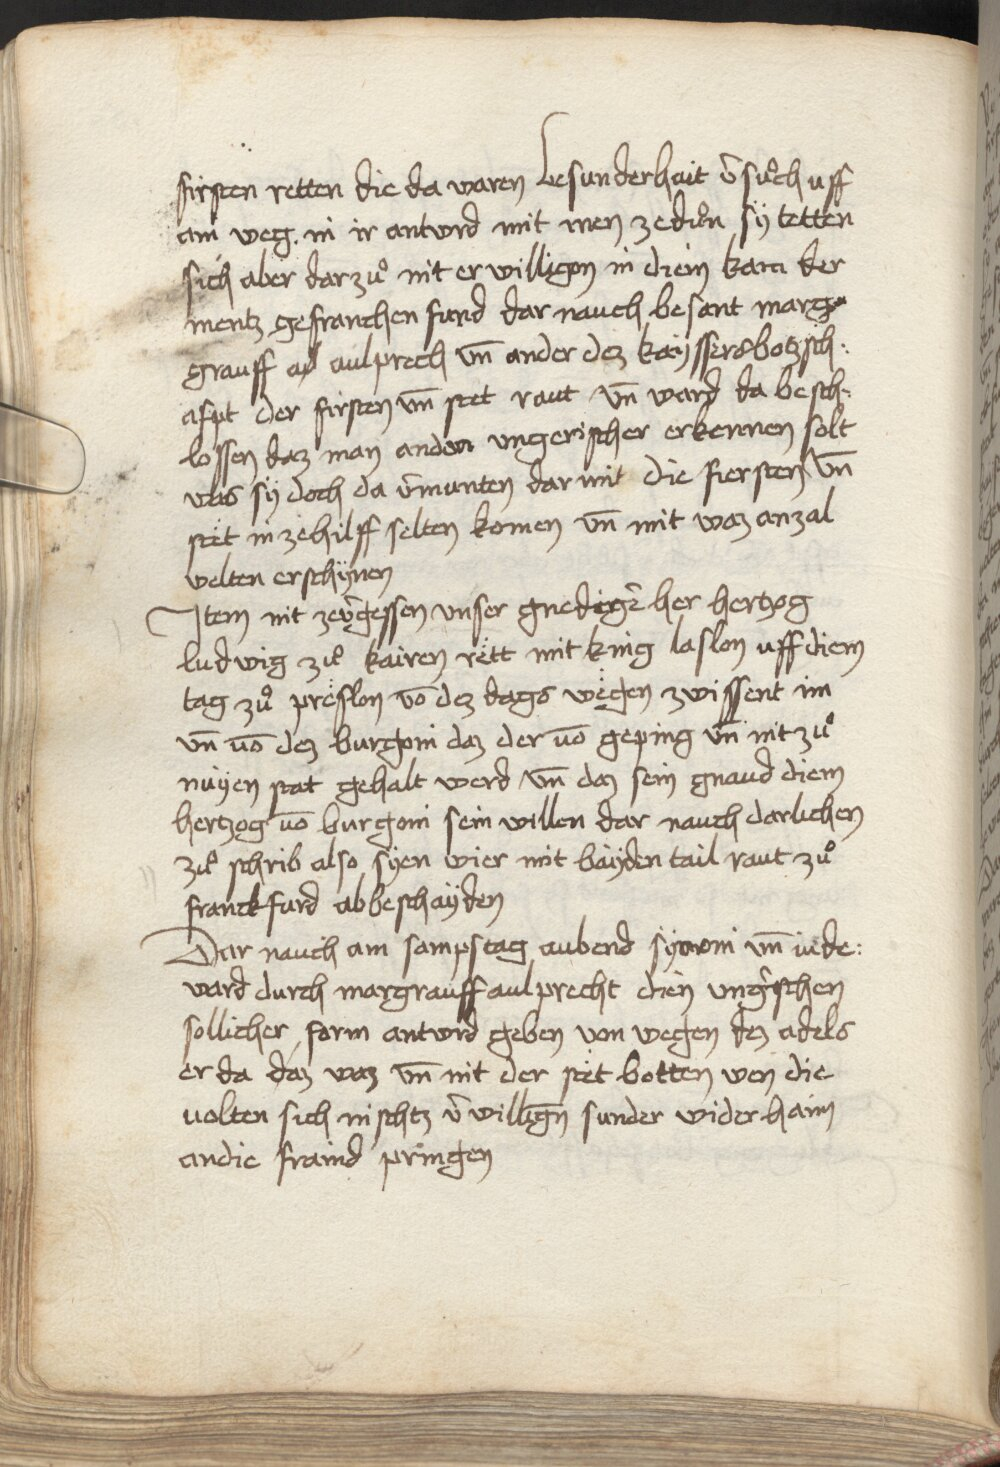 firsten retten die da waren besunderhait v̄suͦch uff
am weg. in ir antwrd mit men zeduͦn sÿ tetten
sich aber darzuͦ nit erwilligon in diem kam der
mentz gefranchen furd dar nauch besant marg
grauff aulprech vn̄ ander dez kaÿssersbotzsch:
afpt der firsten vn̄ stet raut vn̄ ward da besch:
lossen daz man anden ungerischer erkennen solt
vas sÿ doch da v̄munten dar mit die fiersten vn̄
stet in zehilff selten komen vn̄ mit waz anzal
welten erschÿnen
Item nit zev̄gessen unser gnediger her hertzog
ludwig zuͦ kairen rett mit king laslon uff diem
tag zuͦ preslon vō dez dags wegen zwissent im
vn̄ vō dez burgoni daz der vō geping vn̄ nit zuͦ
nuÿen stat gehalt werd vn̄ daz sein gnaud diem
hertzog vō burgoni sein willen dar nauch darlichen
zuͦ schrib also sÿen wier mit baÿden tail raut zuͦ
franckfurd abbeschaÿden
Dar nauch am sampstag aubend sÿmoni vn̄ iude:
vard durch margrauff aulprecht dien unḡschen
sollicher form antwrd geben von wegen dez adels
er da daz waz vn̄ nit der stet botten wen die
volten sich nischtz v̄willign̄ sunder widerhaim
andie fraind pringen